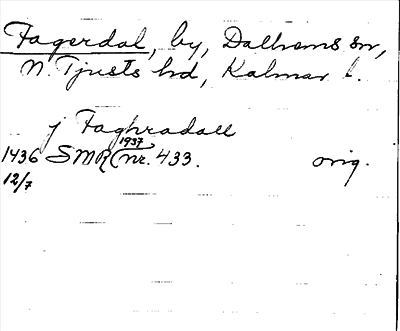 Fagerdal, by, Dalhems sn,
N. Tjusts hd, Kalmar l.
j Faghradall
1436 SMR (1937) nr. 433. orig.
12/7